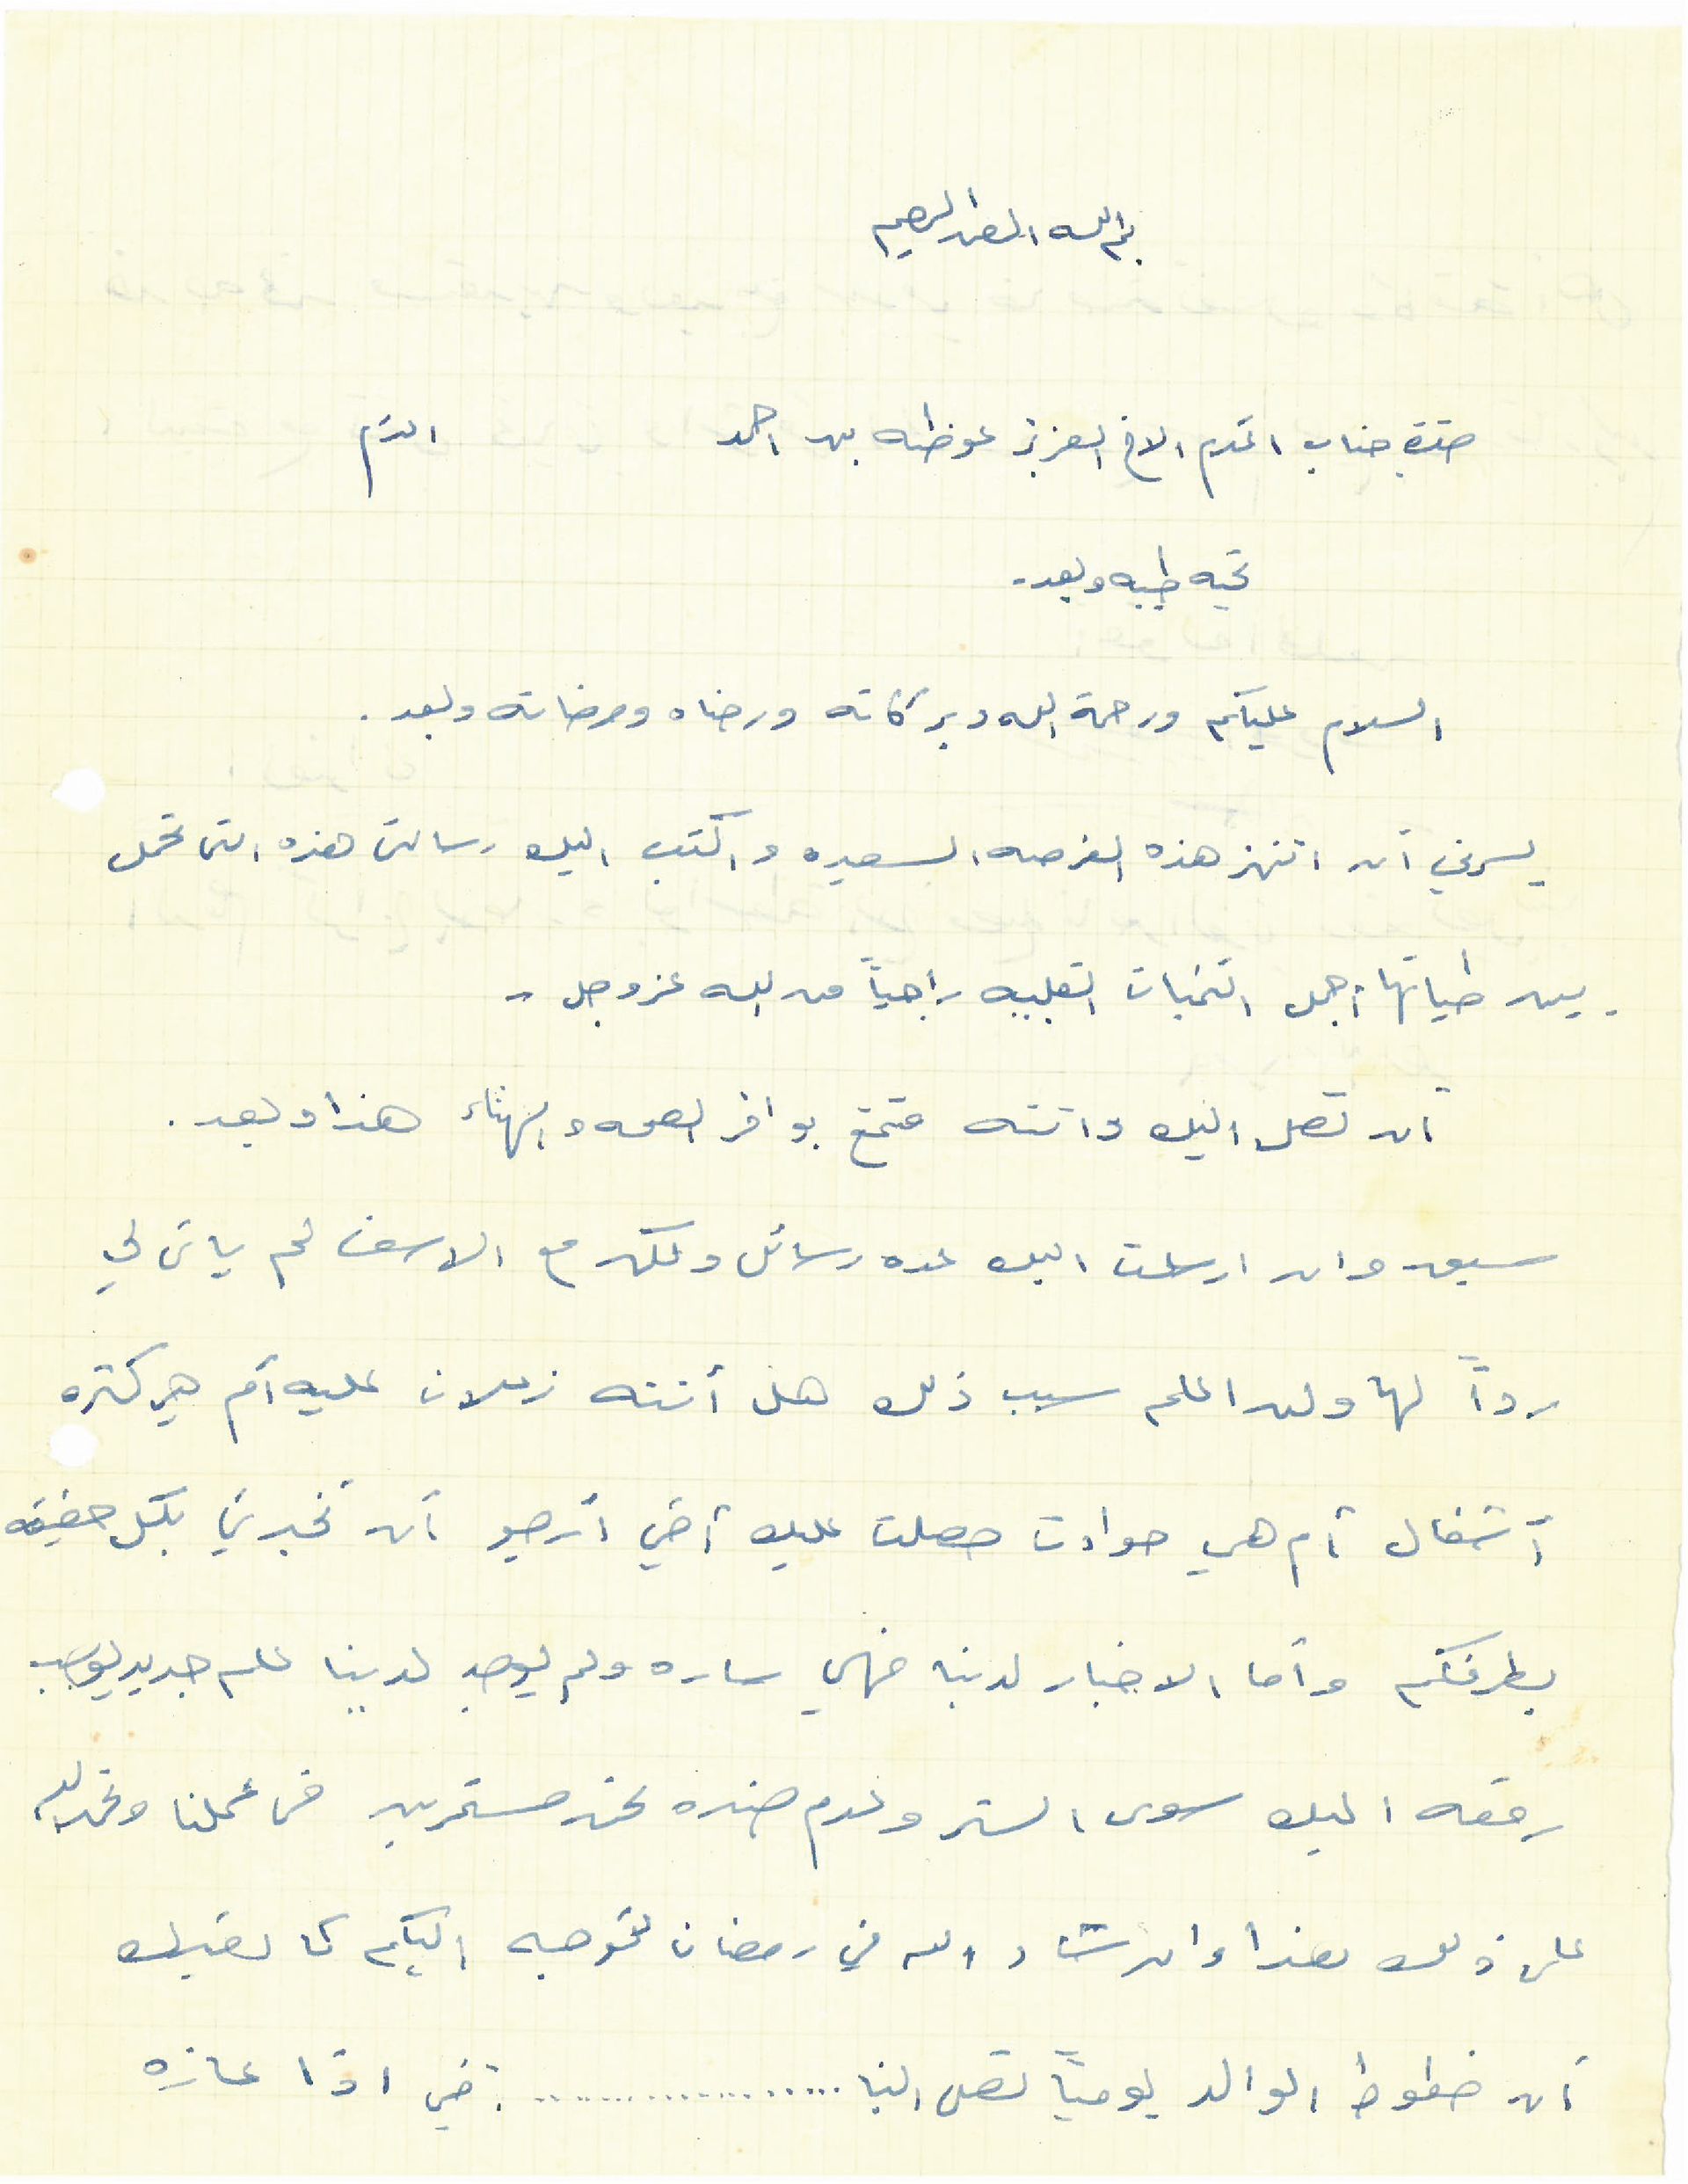 بسم الله الرحمن الرحيم
حضرة جناب المكرم الاخ العزيز عوظه بن احمد المكرم
تحيه طيبه وبعد-
السلام عليكم ورحمة الله وبركاته ورضاه ومرضاته وبعد.
يسرني أن انتهز هذه الفرصه السعيده واكتب اليك رسالتي هذه التي تحمل
بين طياتها أجمل التحيات القلبيه راجياً من الله عز وجل -
أن تصل اليك وانته متمتع بوافر الصحه والهناء هذا وبعد.
سبق وان ارسلت اليك عده رسائل ولكن مع الاسف لم ياتي لي
رداً لها ولن اعلم سبب ذلك هل أنته زعلان عليه أم هي كثره
أشغال أم هي حوادث حصلت عليك أخي أرجو أن تخبرني بكل حقيقه
بطرفكم وأما الاخبار لدينا فهي ساره ولم يوجد لدينا علم جديد يوجب
رفعه اليك سوى الستر وعدم ضده نحن مستمرين في عملنا ونحمد الله
على ذلك هذا وان شاء الله في رمضان نتوجه اليكم كما
أن خطوط الوالد يومياً تصل الينا .................. أخي اذا عازه